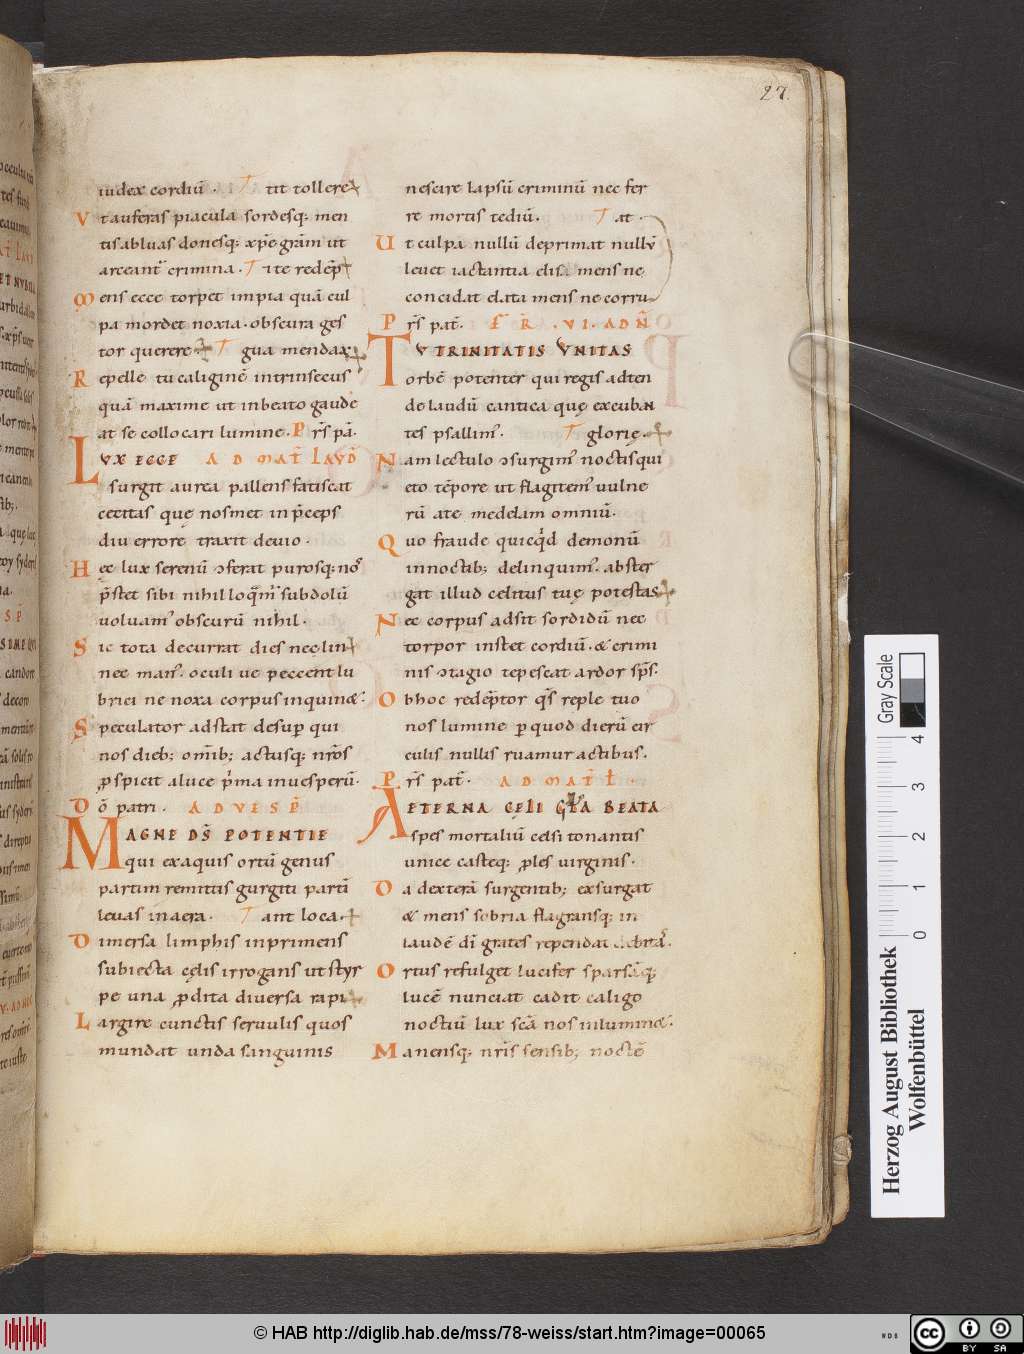 27.
iudex cordiū . T tit tollere
Vt auferas piacula sordesq; men
tis abluas donesq; xp̄e gr̄am ut
arceant᷑ crimina . T ite redēp
Mens ecce torpet impia quā cul
pa mordet noxia . obscura ges
tor querere T gua mendax
Repelle tu caliginē intrinsecus
quā maxime ut in beato gaude
at se collocari lumine . Pr̄s pā.
LVX ECCE AD MAT̄ LAVD̄
surgit aurea pallens fatiscat
cecitas quę nosmet in p̄ceps
diu errore traxit deuio .
Hęc lux serenū ↄferat purosq; nos
p̄stet sibi nihil loq̄m᷑ subdolū
uoluam᷑ obscurū nihil .
Sic tota decurrat dies nec lin
nec man᷑ . oculi ue peccent lu
brici ne noxa corpus inquin&.
Speculator adstat desup qui
nos dieb; om̄ib; actusq; nr̄os
ꝓspicit a luce p̄ma in uesperū.
Dō patri . AD VESP̄
MAGNE DS̄ POTENTIE
qui ex aquis ortū genus
partim remittis gurgiti partī
leuas in aera . T ant loca .
Dimersa limphis inprimens
subiecta cęlis irrogans ut styr
pe una ꝓdita diuersa rapi
Largire cunctis seruulis quos
mundat unda sanguinis
nescire lapsū criminū nec fer
re mortis tediū . T at .
Ut culpa nullū deprimat nullū
leuet iactantia elisa mens ne
concidat elata mens ne corru
Pr̄s pat̄ . F̄R̄ . VI . AD N̄
TV TRINITATIS VNITAS
orbē potenter qui regis adten
de laudū cantica quę excuban
tes psallim᷑ . T glorię.
Nam lectulo ↄsurgim᷑ noctis qui
eto tēpore ut flagitem᷑ uulne
rū a te medelam omniū.
Quo fraude quicq̄d demonū
in noctib; delinquim᷑ . abster
gat illud celitus tuę potestas
Nec corpus adsit sordidū nec
torpor instet cordiū . & crimi
nis ↄtagio tepescat ardor sp̄s.
Ob hoc redēptor q̄s reple tuo
nos lumine ꝑ quod dierū cir
culis nullis ruamur actibus .
Pr̄s pat̄ . AD MAT̄ L̄ .
AETERNA CĘLI GL̄A BEATA
spes mortaliū celsi tonantis
unice casteq; ꝓles uirginis .
Da dexterā surgentib; exsurgat
& mens sobria flagransq; in
laudē dī grates rependat debitas.
Ortus refulget lucifer sparsāq;
lucē nunciat cadit caligo
noctiū lux sc̄a nos inlumin&.
Manensq; nr̄is sensib; noctē
Gray Scale
0 1 2 3 4
Herzog August Bibliothek
Wolfenbüttel
© HAB http://diglib.hab.de/mss/78-weiss/start.htm?image=00065
cc BY SA